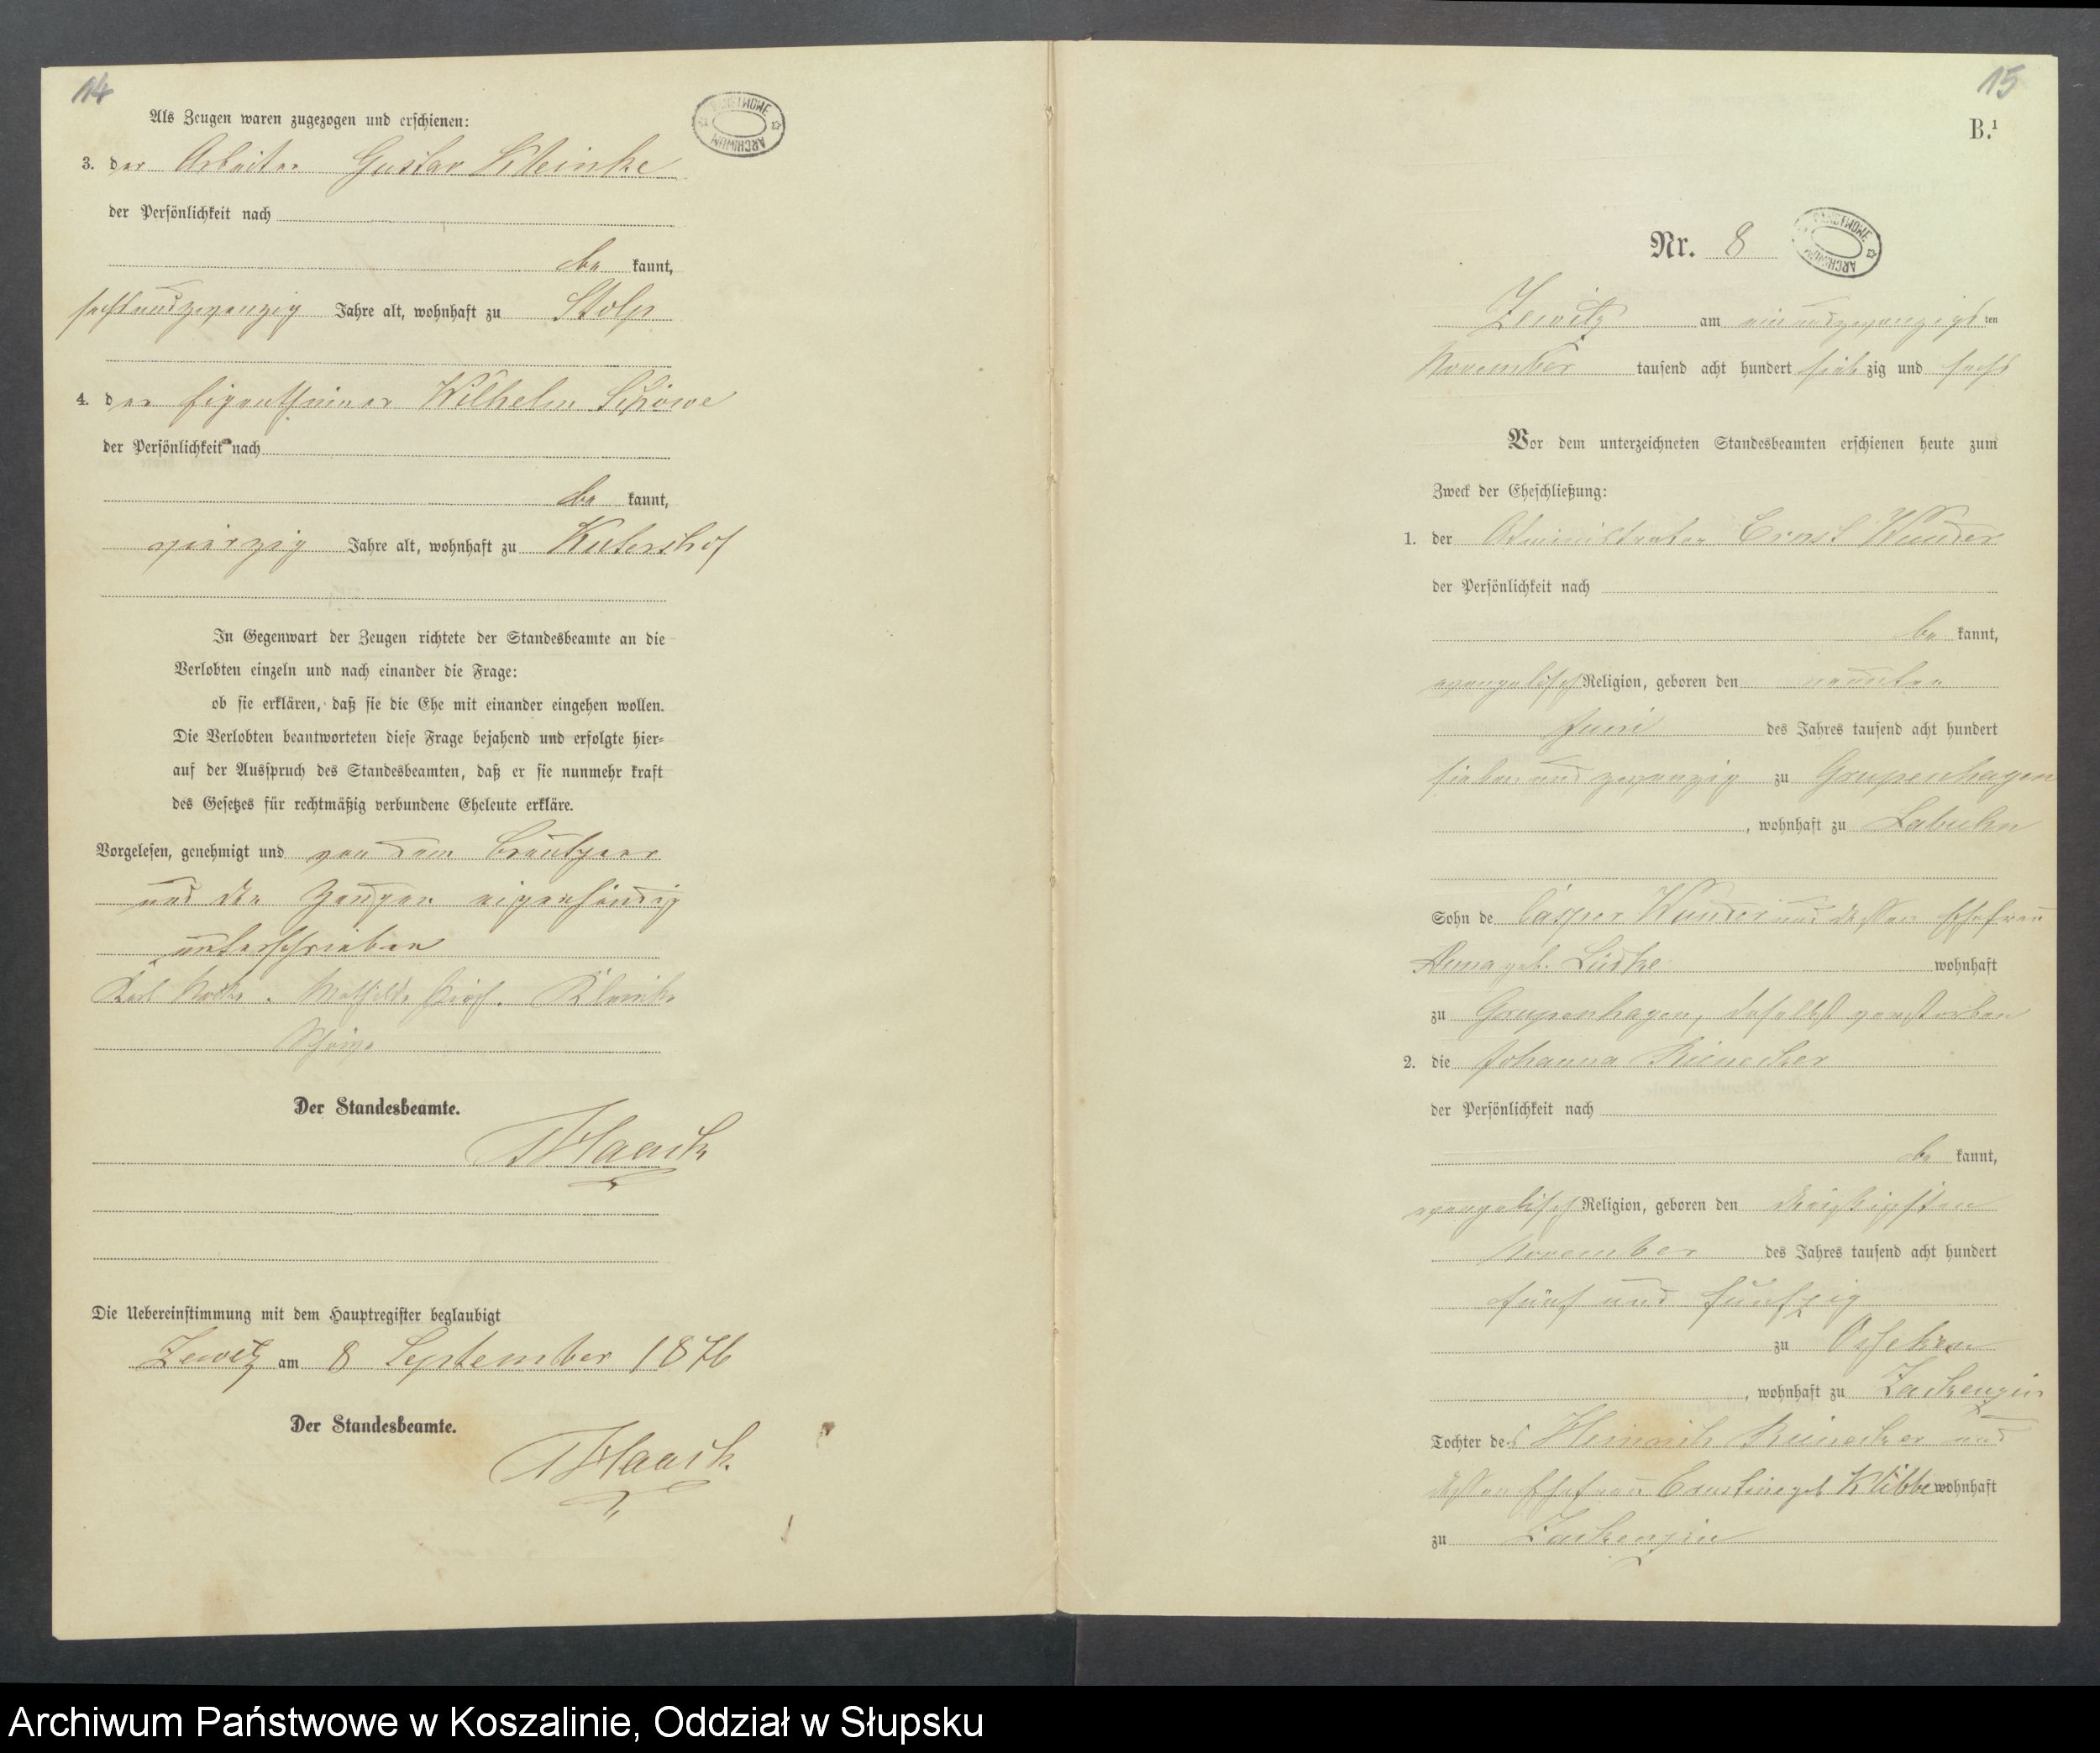 14
Als Zeugen waren zugezogen und erschienen:
PAŃSTWOWE ARCHIWUM
3. der Arbeiter Gustav Kleinke
der Persönlichkeit nach
be kannt,
sechsundzwanzig Jahre alt, wohnhaft zu Stolp
4. der Eigenthümer Wilhelm Schöwe
der Persönlichkeit nach
be kannt,
vierzig Jahre alt, wohnhaft zu Kutershof
In Gegenwart der Zeugen richtete der Standesbeamte an die
Verlobten einzeln und nach einander die Frage:
ob sie erklären, daß sie die Ehe mit einander eingehen wollen.
Die Verlobten beantworteten diese Frage bejahend und erfolgte hier-
auf der Ausspruch des Standesbeamten, daß er sie nunmehr kraft
des Gesetzes für rechtmäßig verbundene Eheleute erkläre.
Vorgelesen, genehmigt und von dem Brautpaar
und den Zeugen eigenhändig
unterschrieben
Karl
Der Standesbeamte.
Haack
Die Uebereinstimmung mit dem Hauptregister beglaubigt
Zewitz am 8 September 1876
Der Standesbeamte.
Haack.
15
B.¹
Nr. 8
PAŃSTWOWE ARCHIWUM
Zewitz am einundzwanzigsten
November tausend acht hundert siebzig und sechs
Vor dem unterzeichneten Standesbeamten erschienen heute zum
Zweck der Eheschließung:
1. der Administrator Ernst Wunder
der Persönlichkeit nach
be kannt,
evangelisch Religion, geboren den neunten
Juni des Jahres tausend acht hundert
sieben und zwanzig zu Grupenhagen
, wohnhaft zu Labuhn
Sohn de Casper Wunder und dessen Ehefrau
Anna geb. Lüdke wohnhaft
zu Grupenhagen, daselbst verstorben
2. die Johanna Rienecker
der Persönlichkeit nach
be kannt,
evangelisch Religion, geboren den dreißigsten
November des Jahres tausend acht hundert
fünf und fünfzig
zu Osseken
, wohnhaft zu Zackenzin
Tochter des Heinrich Rienecker und
dessen Ehefrau Ernstine geb Klibbe wohnhaft
zu Zackenzin
Archiwum Państwowe w Koszalinie, Oddział w Słupsku